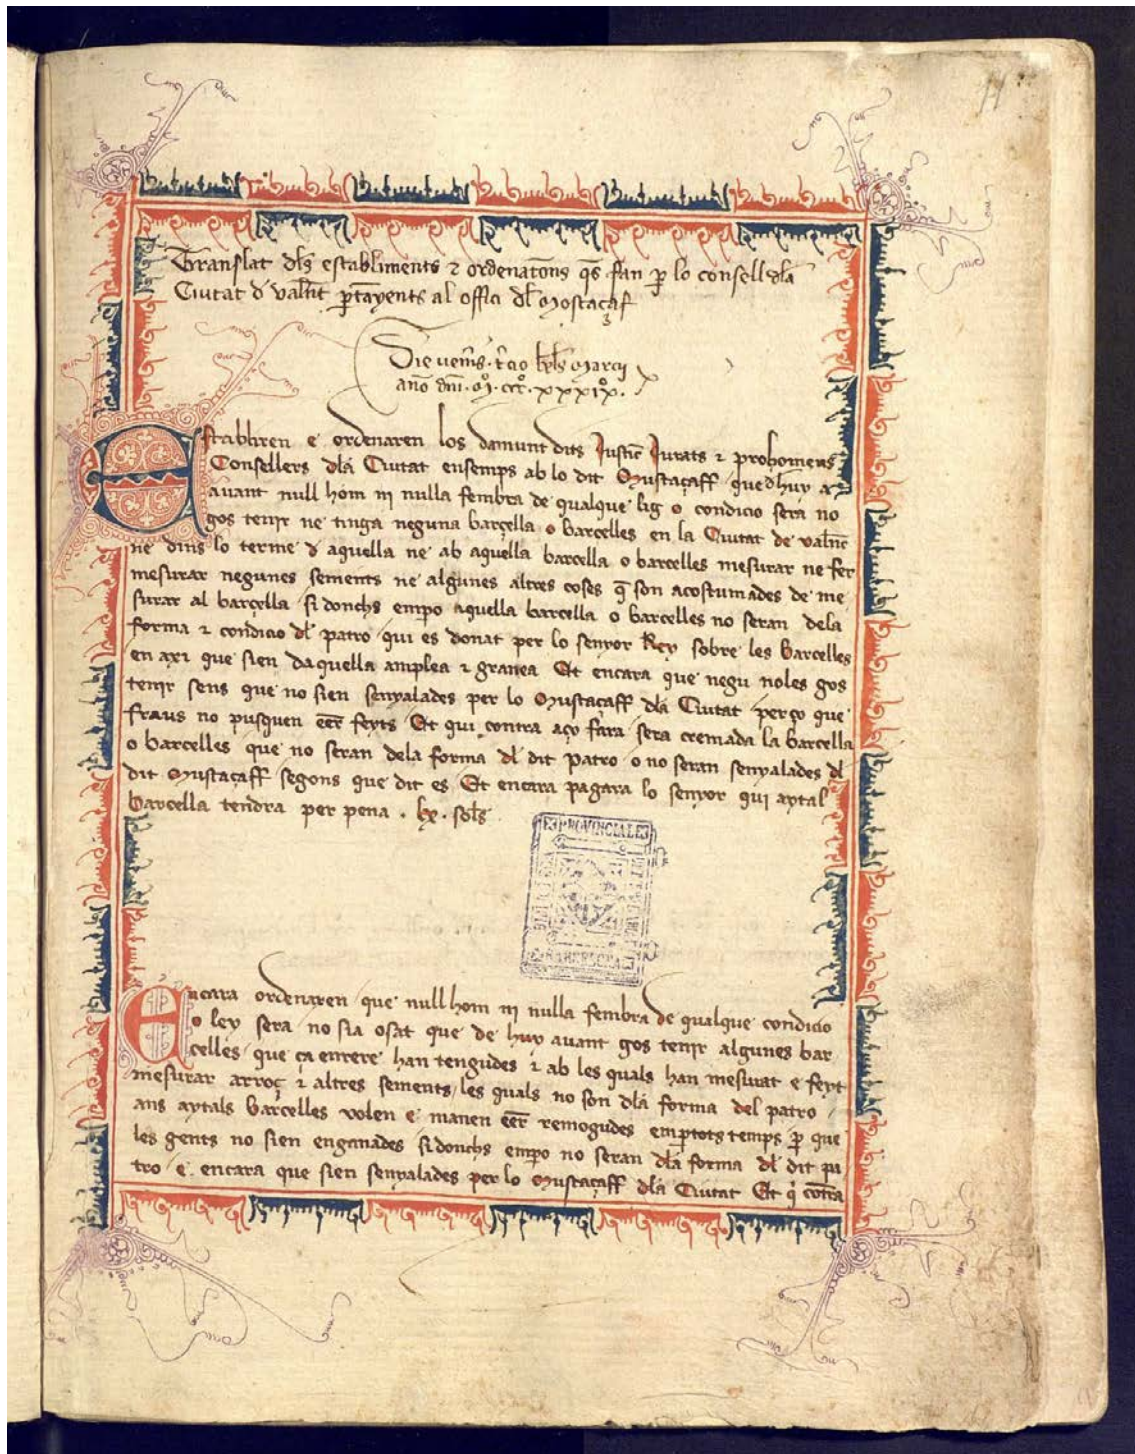 Translat dls establiments ⁊ ordenatons qs fan p lo consell dla
Ciutat d valnt ptayents al offici dl Mostaçaf
Die uenis · tcio kls Marcij
año dni · Mº · cccº · xxxixº ·
Establiren e ordenaren los damunt dits Justic Jurats ⁊ prohomens
Consellers dla Ciutat ensemps ab lo dit Mustaçaff que dhuy
auant null hom ni nulla fembra de qualque lig o condicio sera no
gos tenir ne tinga neguna barcella o barcelles en la Ciutat de valnc
ne dins lo terme d aquella ne ab aquella barcella o barcelles mesurar ne fer
mesurar negunes sements ne algunes altres coses q son acostumades de me
surar al barcella si donchs empo aquella barcella o barcelles no seran dela
forma ⁊ condicio dl patro qui es donat per lo senyor Rey sobre les barcelles
en axi que sien daquella amplea ⁊ granea Et encara que negu noles gos
tenir sens que no sien senyalades per lo Mustaçaff dla Ciutat perço que
fraus no pusquen eer feyts Et qui contra aço fara sera cremada la barcella
o barcelles que no seran dela forma dl dit patro o no seran senyalades dl
dit Mustaçaff segons que dit es Et encara pagara lo senyor qui aytal
barcella tendra per pena · lx · sols
Encara ordenaren que null hom ni nulla fembra de qualque condicio
o ley sera no sia osat que de huy auant gos tenir algunes bar
celles que ça enrere han tengudes ⁊ ab les quals han mesurat e feyt
mesurar arroç ⁊ altres sements les quals no son dla forma del patro
ans aytals barcelles volen e manen eer remogudes emptots temps p que
les gents no sien enganades si donchs empo no seran dla forma dl dit pa
tro e encara que sien senyalades per lo Mustaçaff dla Ciutat Et q contra
PROVINCIAL